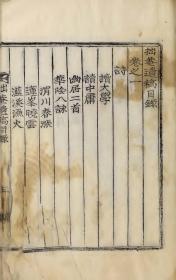 拙菴遺稿目錄
卷之一
詩
讀大學
讀中庸
幽居二首
華陰八詠
渭川春漲
蓮峯曉雲
漁火
拙菴遺稿目錄